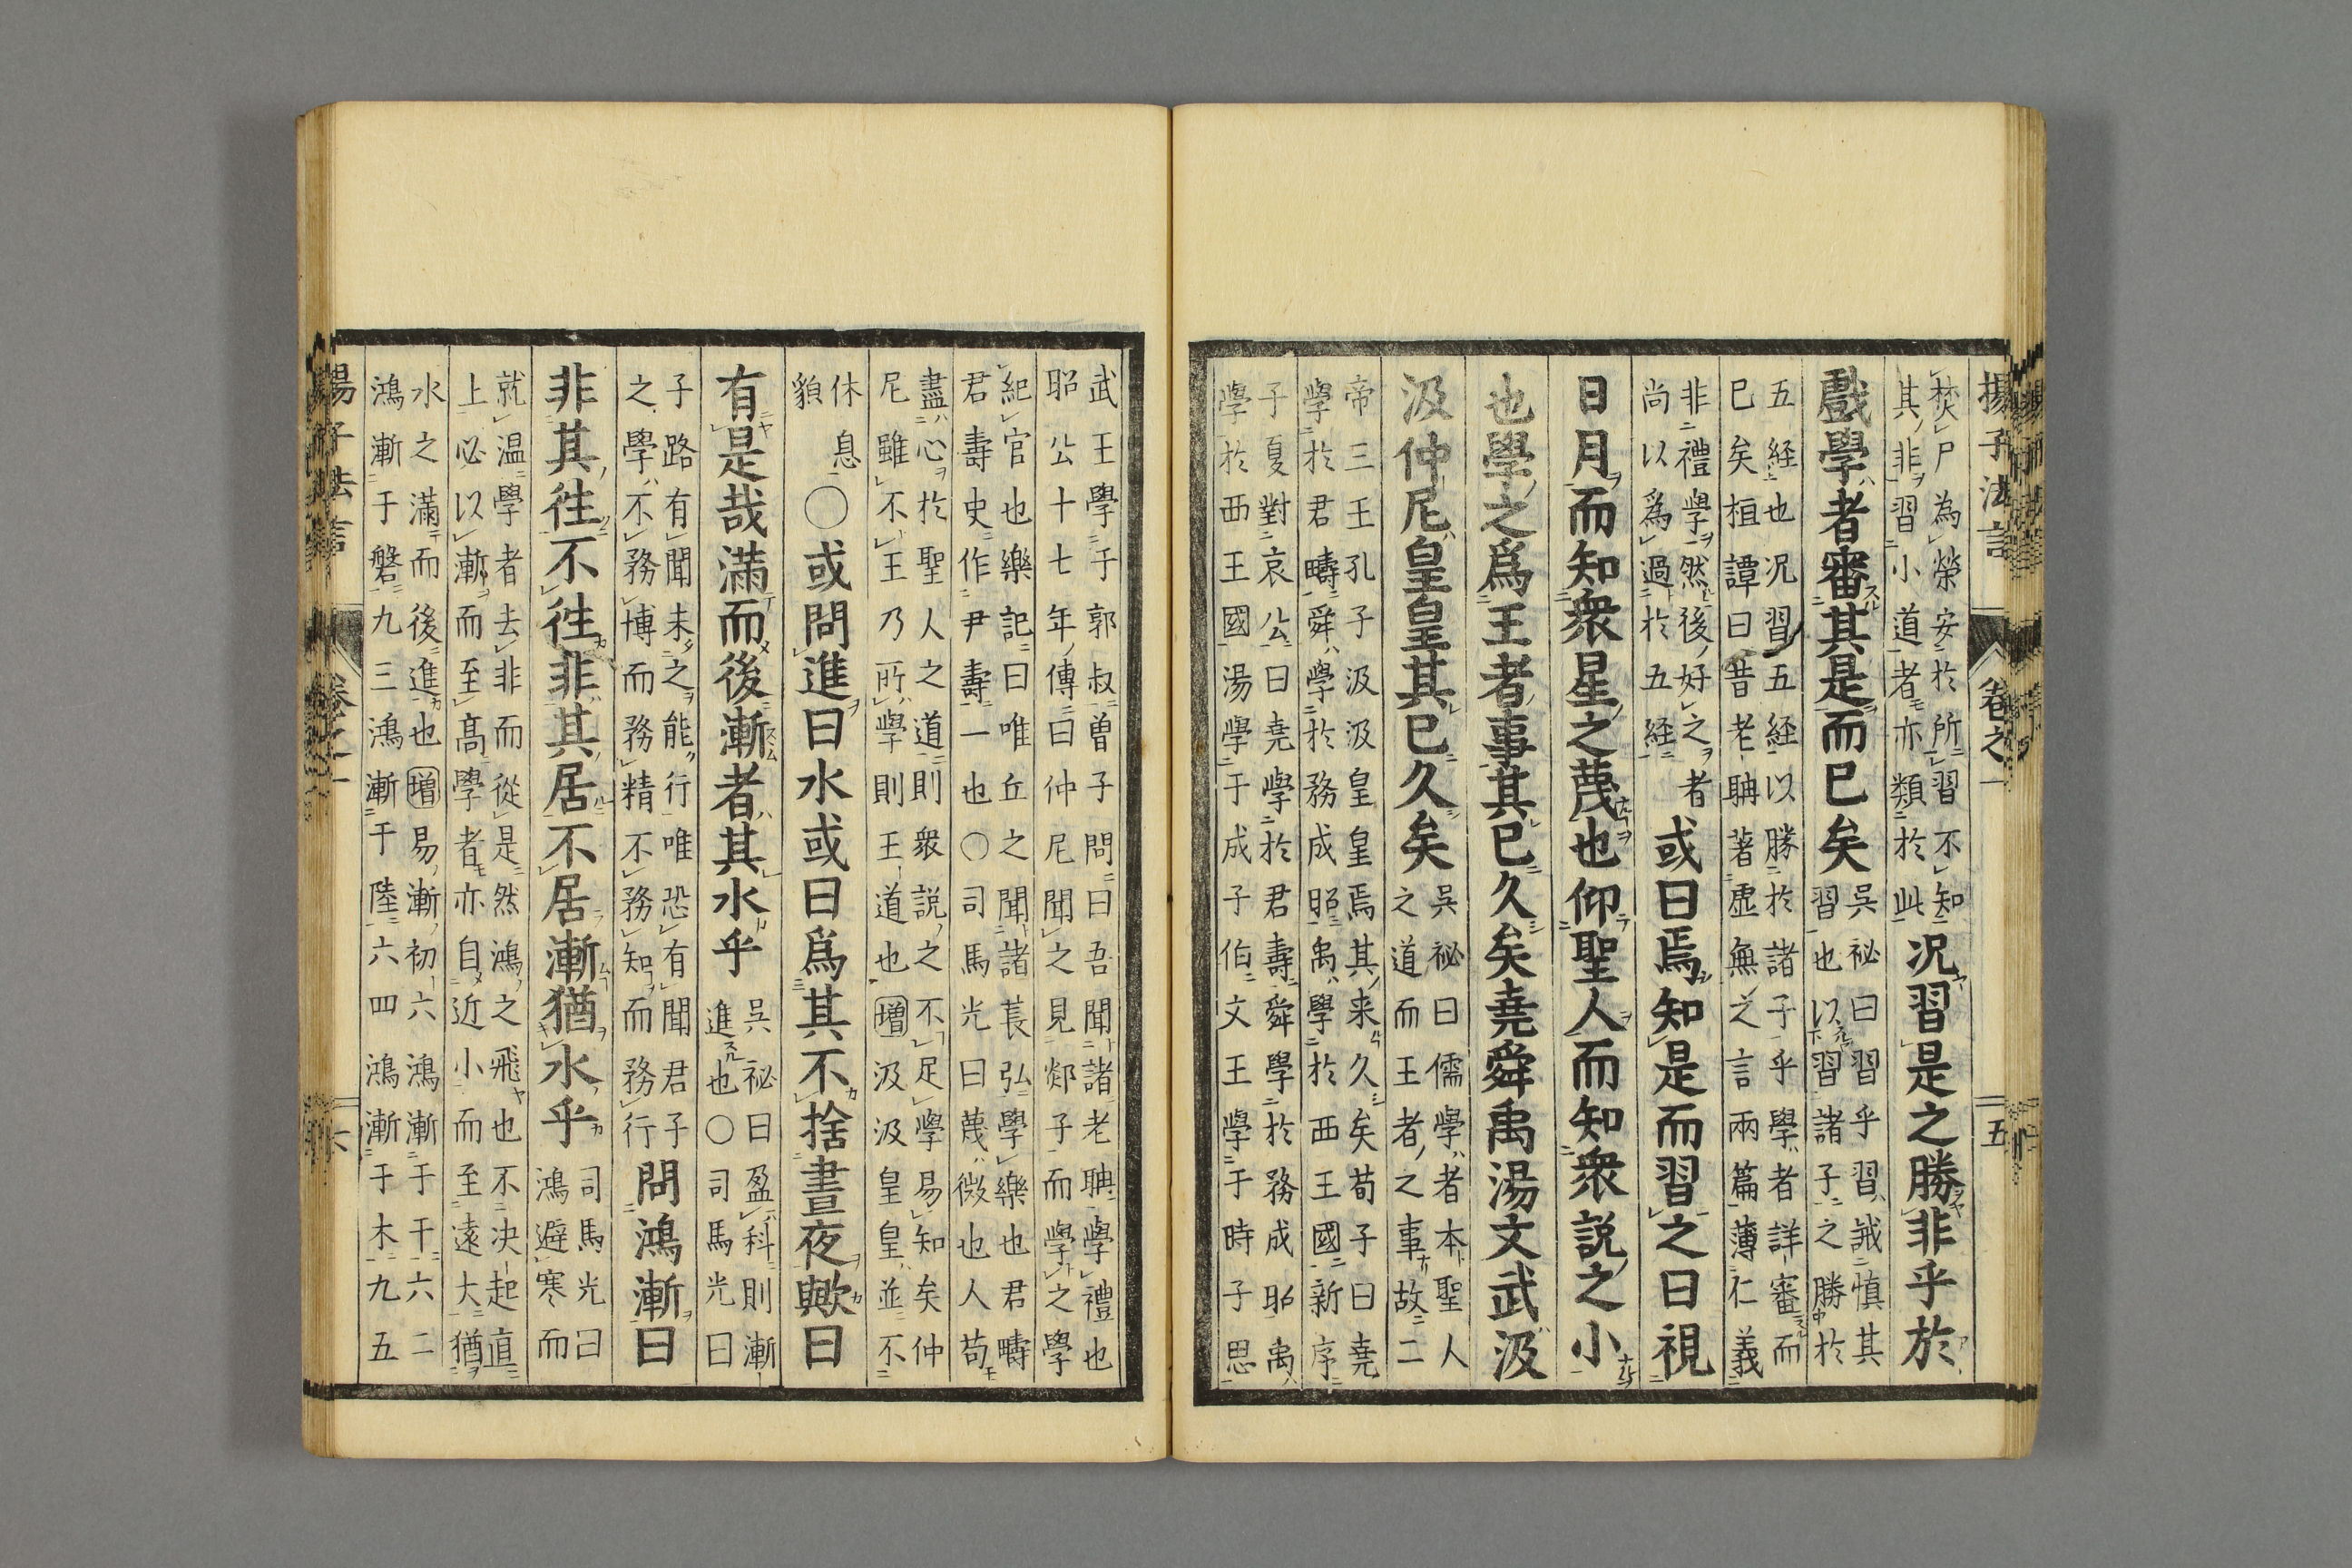 揚子法言
卷之一
五
焚尸為榮安於所習不知
其非習小道者亦類於此
況習是之勝非乎於
戲學者審其是而已矣
吳祕曰習乎習誡慎其
習也以習諸子之勝於
五経也况習五経以勝於諸子乎學者詳審而
已矣桓譚曰昔老聃著虛無之言兩篇薄仁義
非禮學然後好之者
尚以爲過於五経
或曰焉知是而習之曰視
日月而知衆星之蔑也仰聖人而知衆説之小
也學之爲王者事其已久矣堯舜禹湯文武汲
汲仲尼皇皇其已久矣
吳祕曰儒學者本聖人
之道而王者之事故二
帝三王孔子汲汲皇皇焉其来久矣荀子曰堯
學於君疇舜學於務成昭禹學於西王國新序
子夏對哀公曰堯學於君壽舜學於務成昭禹
學於西王國湯學于成子伯文王學于時子思
武王學于郭叔曽子問曰吾聞諸老聃學禮也
昭公十七年傳曰仲尼聞之見郯子而學之學
紀官也樂記曰唯丘之聞諸萇弘學樂也君疇
君壽史作尹壽一也○司馬光曰蔑微也人苟
盡心於聖人之道則衆説之不足學易知矣仲
尼雖不王乃所學則王道也増汲汲皇皇並不
休息
貌
○或問進曰水或曰爲其不捨晝夜歟曰
有是哉滿而後漸者其水乎
吳祕曰盈科則漸
進也○司馬光曰
子路有聞未之能行唯恐有聞君子
之學不務博而務精不務知而務行
問鴻漸曰
非其徃不徃非其居不居漸猶水乎
司馬光曰
鴻避寒而
就温學者去非而從是然鴻之飛也不决起直
上必以漸而至髙學者亦自近小而至遠大猶
水之滿而後進也増易漸初六鴻漸于干六二
鴻漸于磐九三鴻漸于陸六四鴻漸于木九五